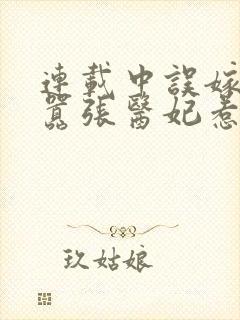 連載中誤嫁
囂張醫妃惹
玖姑娘